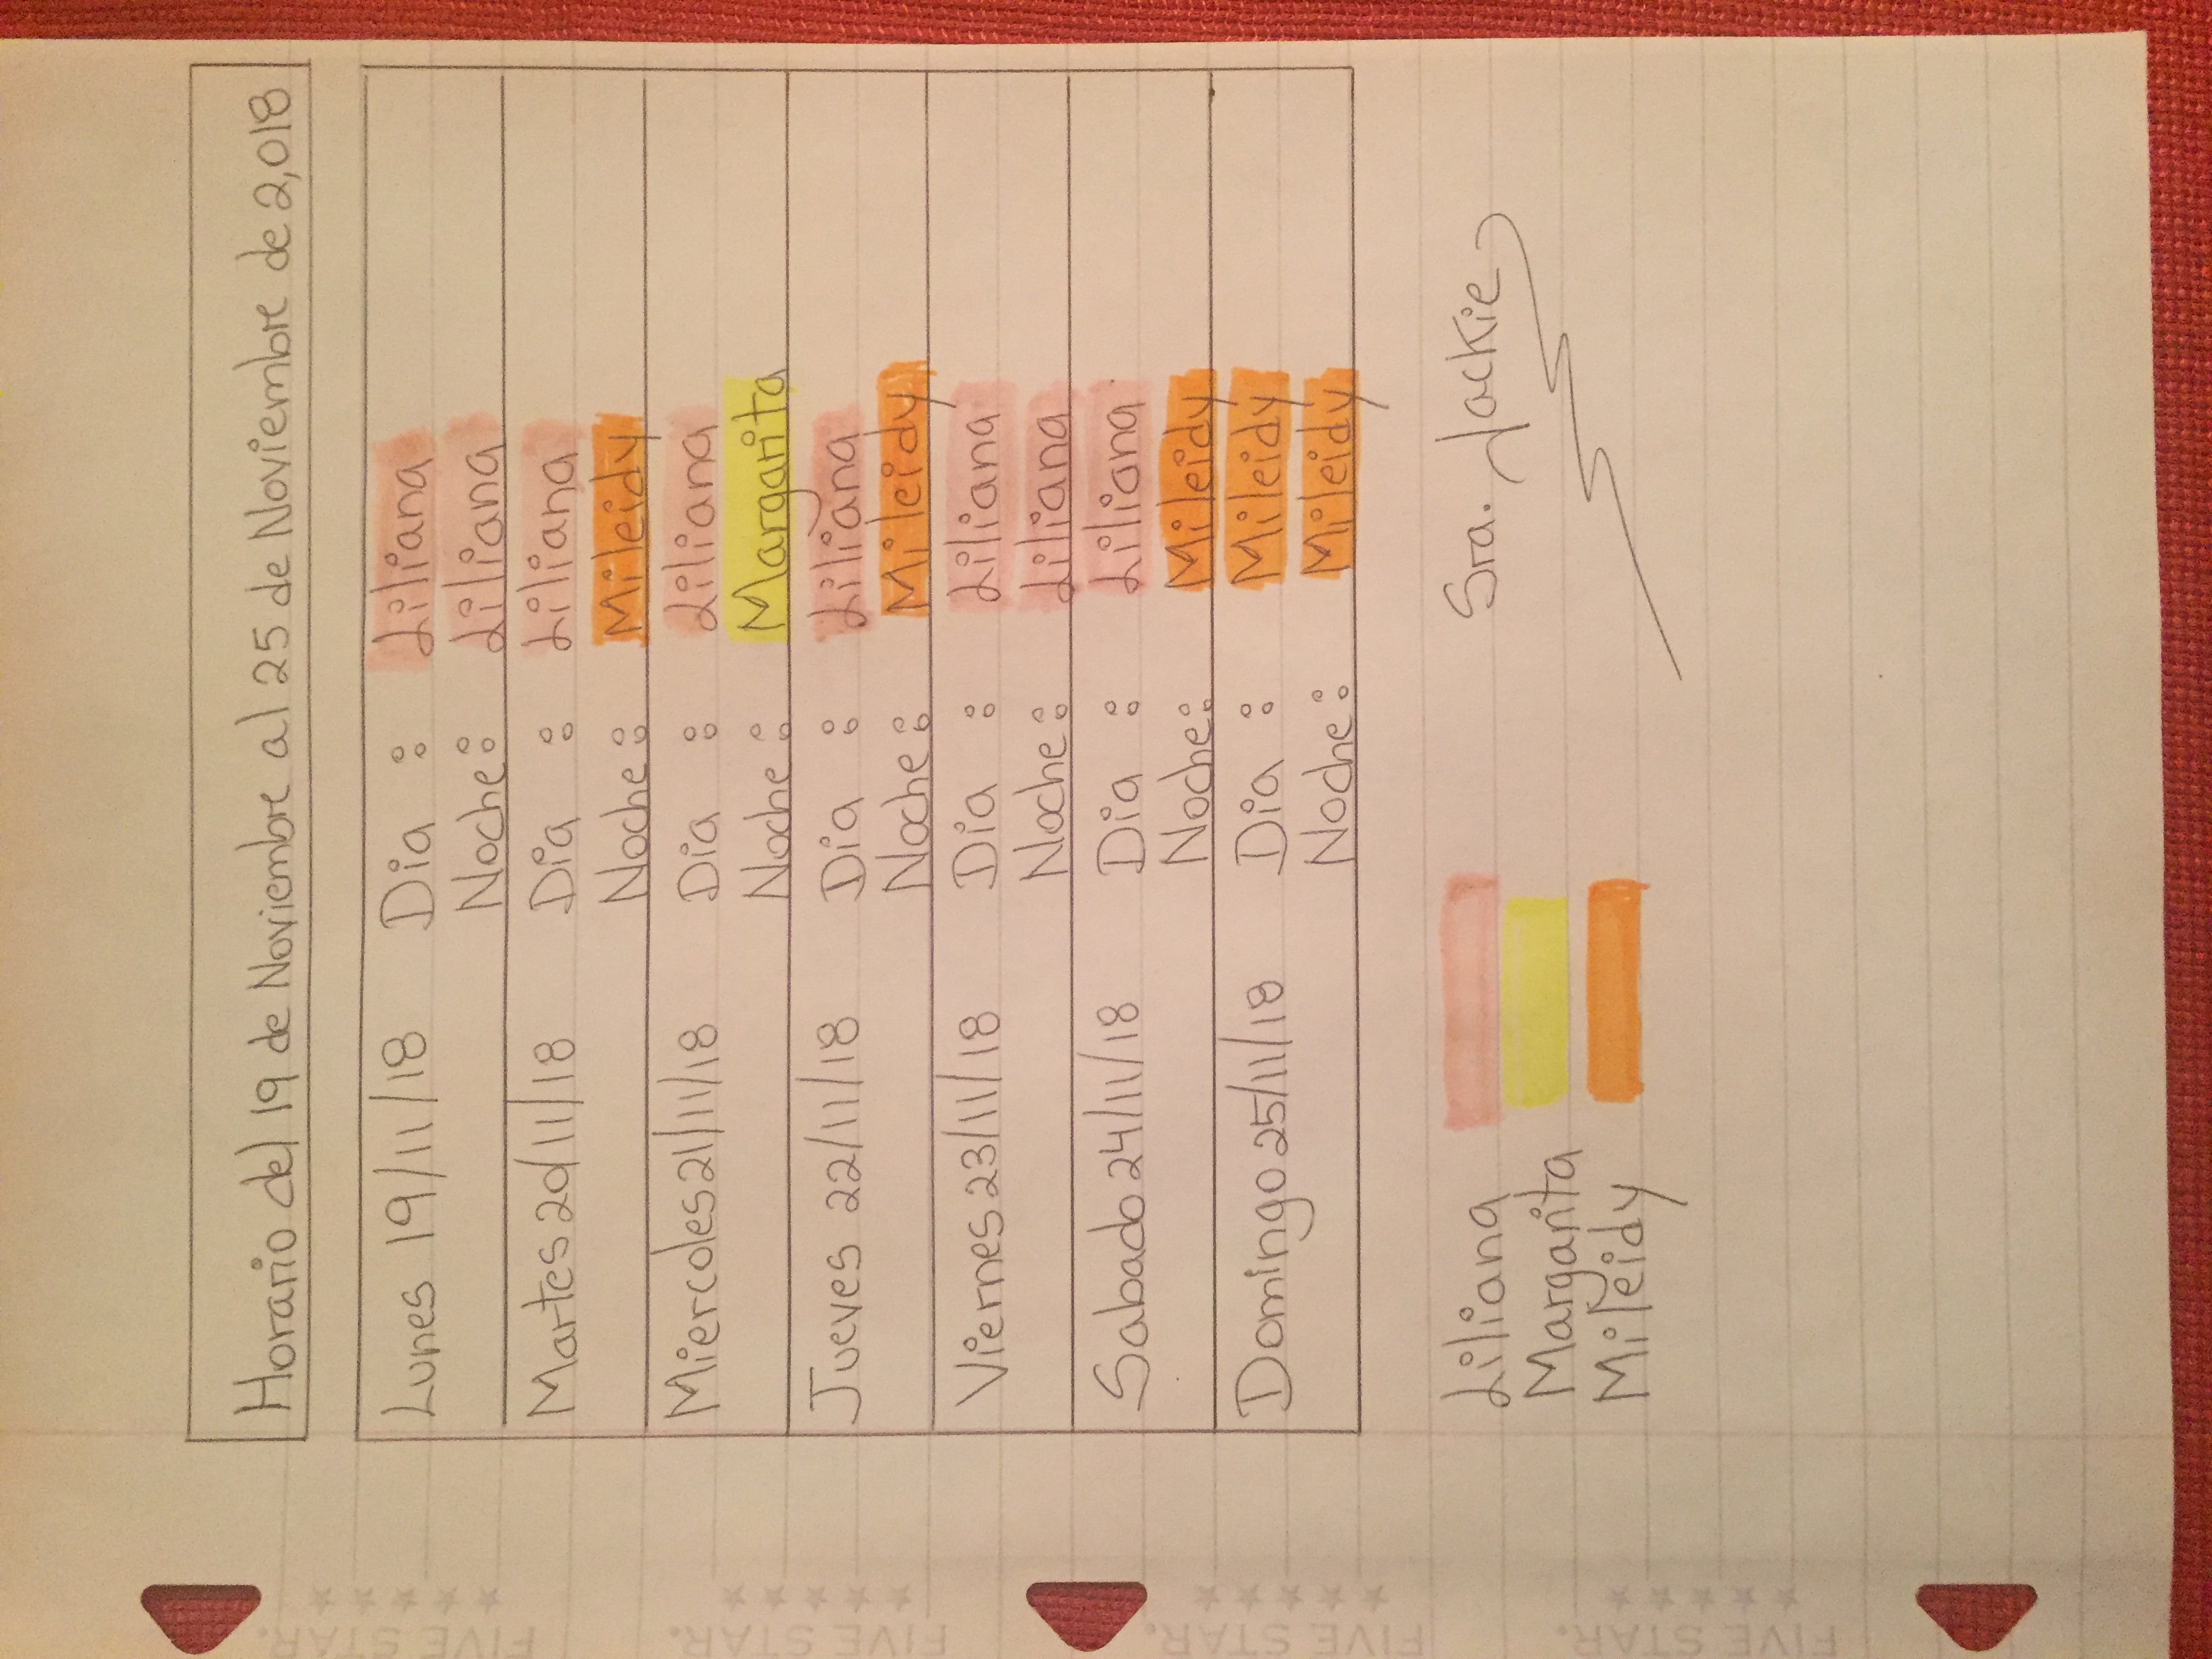 Horario del 19 de Noviembre al 25 de Noviembre de 2,018
Lunes 19/11/18 Dia : Liliana
Noche: Liliana
Martes 20/11/18 Dia : Liliana
Noche: Mileidy
Miercoles 21/11/18 Dia : Liliana
Noche: Margarita
Jueves 22/11/18 Dia : Liliana
Noche: Mileidy
Viernes 23/11/18 Dia : Liliana
Noche: Liliana
Sabado 24/11/18 Dia : Liliana
Noche: Mileidy
Domingo 25/11/18 Dia : Mileidy
Noche: Mileidy
Liliana
Margarita
Mileidy
Sra. Jackie
FIVE STAR.
FIVE STAR.
FIVE STAR.
FIVE STAR.